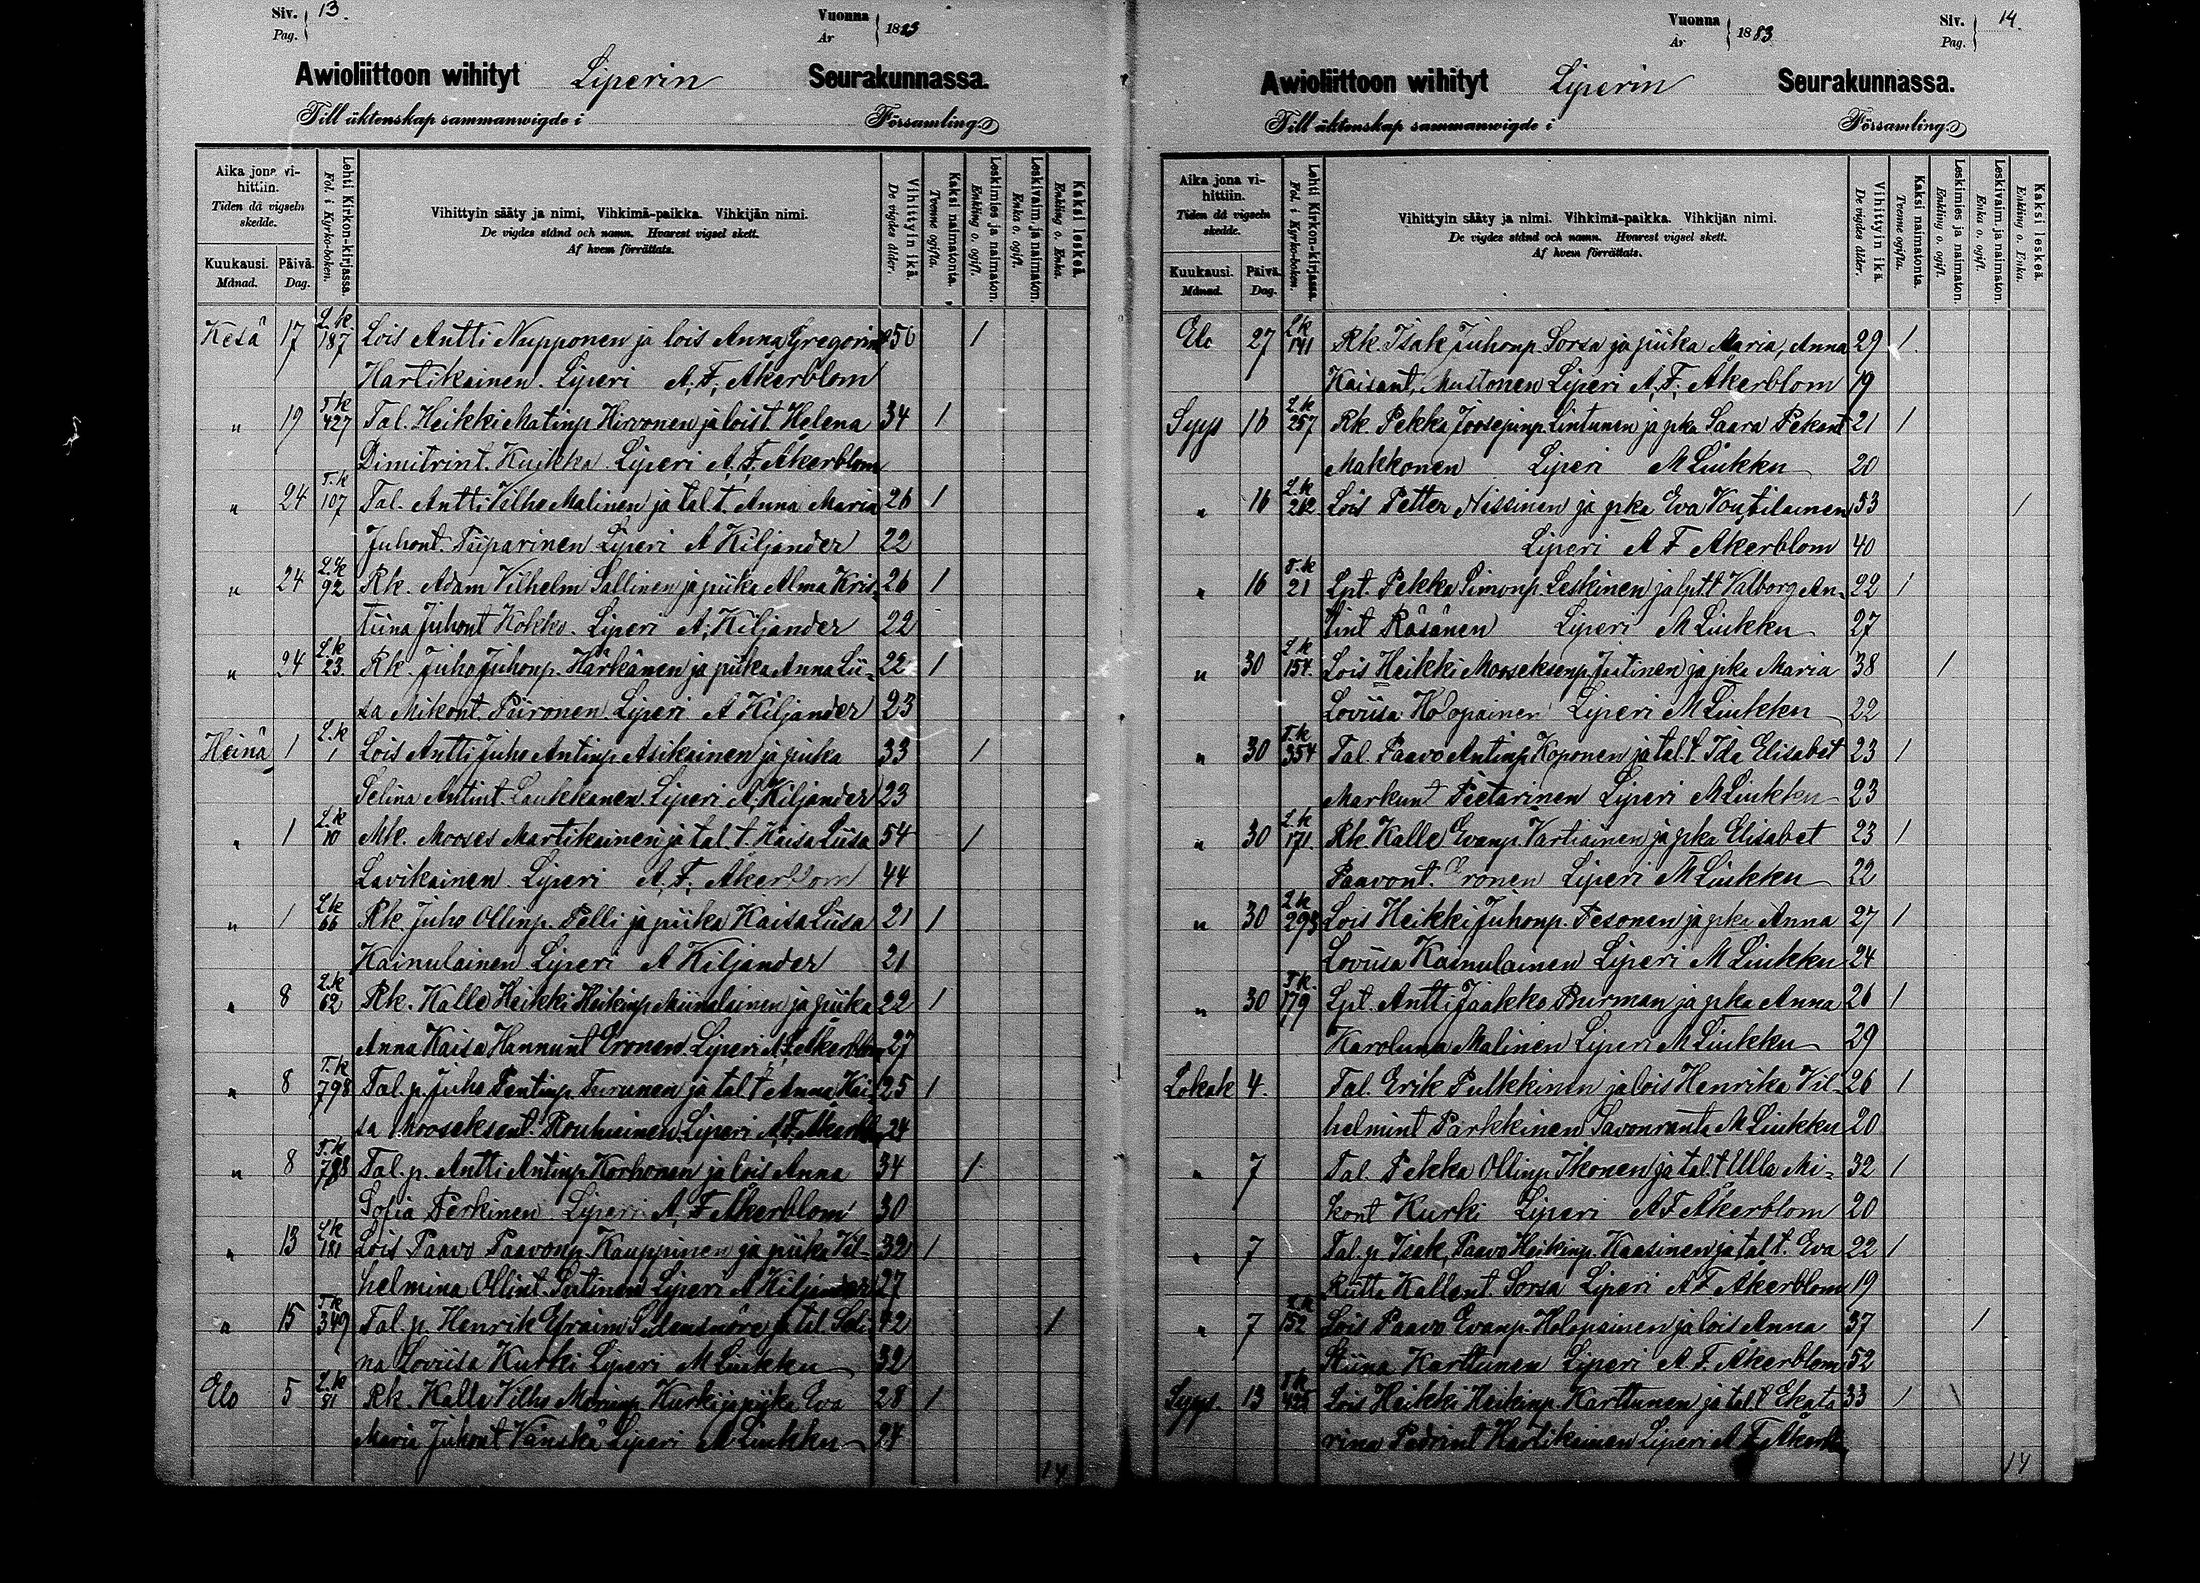 Siv. 13.
Pag.
Vuonna 1883
År
Awioliittoon wihityt Liperin Seurakunnassa.
Till äktenskap sammanwigde i Församling.
Aika jona vihittiin. Tiden då vigseln skedde.
Kuukausi. Månad.
Päivä. Dag.
Lehti Kirkon-kirjassa. Fol. i Kyrko-boken.
Vihittyin sääty ja nimi. Vihkimä-paikka. Vihkijän nimi.
De vigdes stånd och namn. Hvarest vigsel skett.
Af hvem förrättats.
Vihittyin ikä. De vigdes ålder.
Kaksi naimatonta. Tvenne ogifta.
Leskimies ja naimaton. Enkling o. ogift.
Leskivaim. ja naimaton. Enka o. ogift.
Kaksi leskeä. Enkling o. Enka.
Kesä 17 L.k. 187 Lois Antti Nupponen ja lois Anna Gregorint 50 1
Hartikainen. Liperi A. F. Åkerblom
" 19 T.k 427 Tal. Heikki Matinp. Hirvonen ja lois t. Helena 34 1
Dimitrint. Kuikka Liperi A. F. Åkerblom
" 24 T.k 107 Tal. Antti Vilho Malinen ja tal. t. Anna Maria 26 1
Juhont. Tiiparinen Liperi A Kiljander 22
" 24 L.k 92 Rk. Adam Vilhelm Sallinen ja piika Alma Kris- 26 1
tiina Juhont Kokko. Liperi A. Kiljander 22
" 24 L.k 23. Rk. Juho Juhonp. Härkänen ja piika Anna Lii- 22 1
sa Mikont. Piironen Liperi A Kiljander 23
Heinä 1 L.k 1 Lois Antti Juho Antinp. Asikainen ja piika 33 1
Selina Antint. Laukkanen. Liperi A. Kiljander 23
" 1 L.k 10 Mk. Mooses Martikainen ja tal. t. Kaisa Liisa 54 1
Lavikainen. Liperi A. F. Åkerblom 44
" 1 L.k 66 Rk. Juho Ollinp. Pelli ja piika Kaisa Liisa 21 1
Kainulainen Liperi A Kiljander 21
" 8 L.k 62 Rk. Kalle Heikki Heikinp. Miinalainen ja piika 22 1
Anna Kaisa Hannunt Eronen. Liperi A. F. Åkerblom 27
" 8 T.k 798 Tal. p. Juho Pentinp. Turunen ja tal t Anna Kai- 25 1
sa Mooseksent. Rouhiainen Liperi A. F. Åkerbl. 24
" 8 T.k 788 Tal. p. Antti Antinp. Korhonen ja lois Anna 34 1
Sofia Perkinen Liperi A. F Åkerblom 30
" 13 L.k 181 Lois Paavo Paavonp. Kauppinen ja piika Vil- 32 1
helmina Ollint. Liperi A Kiljander 27
" 15 T.k 349 Tal. p. Henrik Efraim ja tal. Seli- 42 1
na Loviisa Kurki Liperi M Liukku 32
Elo 5 L.k 81 Rk. Kalle Vilho Kurki ja piika Eva 28 1
Maria Juhont Vänskä Liperi M Liukku 24
14
Vuonna 1883
År
Siv. 14.
Pag.
Awioliittoon wihityt Liperin Seurakunnassa.
Till äktenskap sammanwigde i Församling.
Aika jona vihittiin. Tiden då vigseln skedde.
Kuukausi. Månad.
Päivä. Dag.
Lehti Kirkon-kirjassa. Fol. i Kyrko-boken.
Vihittyin sääty ja nimi. Vihkimä-paikka. Vihkijän nimi.
De vigdes stånd och namn. Hvarest vigsel skett.
Af hvem förrättats.
Vihittyin ikä. De vigdes ålder.
Kaksi naimatonta. Tvenne ogifta.
Leskimies ja naimaton. Enkling o. ogift.
Leskivaim. ja naimaton. Enka o. ogift.
Kaksi leskeä. Enkling o. Enka.
Elo 27 L.k 141 Rk. Isak Juhonp. Sorsa ja piika Maria, Anna 29 1
Kaisant, Mustonen Liperi A. F. Åkerblom 19
Syys 16 L.k 257 Rk. Pekka Joosepinp. Lintunen ja pka Saara Pekant 21 1
Makkonen Liperi M Liukku 20
" 16 L.k 262 Lois Petter Nissinen ja pka Eva Voutilainen 53 1
Liperi A F Åkerblom 40
" 16 T.k 21 Lpt. Pekka Simonp. Leskinen ja lpt. t Valborg An- 22 1
tint Räsänen Liperi M Liukku 27
" 30 L.k 154. Lois Heikki Mooseksenp. ja pka Maria 38 1
Loviisa Holopainen Liperi M Liukku 22
" 30 T.k 354 Tal. Paavo Antinp. Koponen ja tal. t. Ida Elisabet 23 1
Markunt Pietarinen Liperi M Liukku 23
" 30 L.k 171 Rk. Kalle Evanp. Vartiainen ja pka Elisabet 23 1
Paavont. Eronen Liperi M Liukku 22
" 30 L.k 293 Lois Heikki Juhonp. Pesonen ja pka Anna 27 1
Loviisa Kainulainen Liperi M Liukku 24
" 30 T.k. 179 Lpt. Antti Jaakko Burman ja pka Anna 26 1
Karoliina Malinen Liperi M Liukku 29
Lokak 4. Tal. Erik Pulkkinen ja lois Henrika Vil- 26 1
helmint Parkkinen Savonranta M Liukku 20
" 7 Tal. Pekka Ollinp. Ikonen ja tal. t Ulla Mi- 32 1
kont Kurki Liperi A F Åkerblom 20
" 7 Tal. p. Isak, Paavo Heikinp. Kaasinen ja tal t. Eva 22 1
Riitta Kallent. Sorsa Liperi A F. Åkerblom 19
" 7 L.k 152 Lois Paavo Evanp. Holopainen ja lois Anna 37 1
Stiina Karttunen Liperi A F. Åkerblom 52
Syys. 13 T.k Lois Heikki Heikinp. Karttunen ja tal. t Ekata 33 1
rina Pedrint Hartikainen Liperi A F Åkerbl.
14